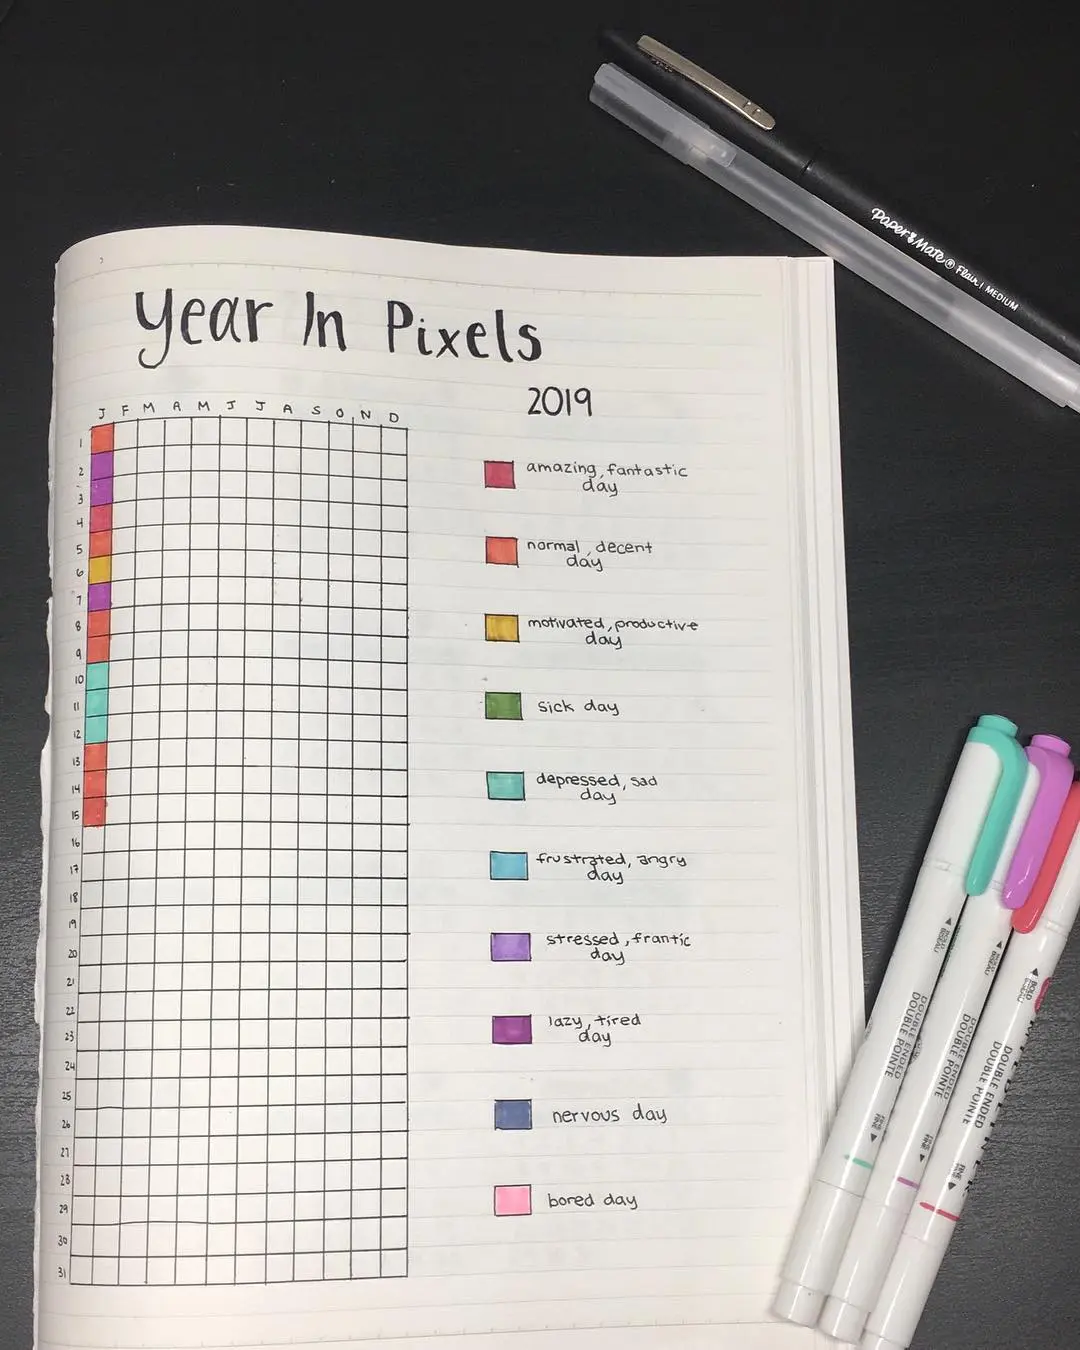 Year In Pixels
2019
J F M A M J J A S O N D
1
2
3
4
5
6
7
8
9
10
11
12
13
14
15
16
17
18
19
20
21
22
23
24
25
26
27
28
29
30
31
amazing, fantastic
day
normal, decent
day
motivated, productive
day
sick day
depressed, sad
day
frustrated, angry
day
stressed, frantic
day
lazy, tired
day
nervous day
bored day
Paper Mate® Flair! MEDIUM
DOUBLE ENDED
DOUBLE POINTE
DOUBLE ENDED
DOUBLE POINTE
BOLD
DOUBLE ENDED
DOUBLE POINTE
FINE